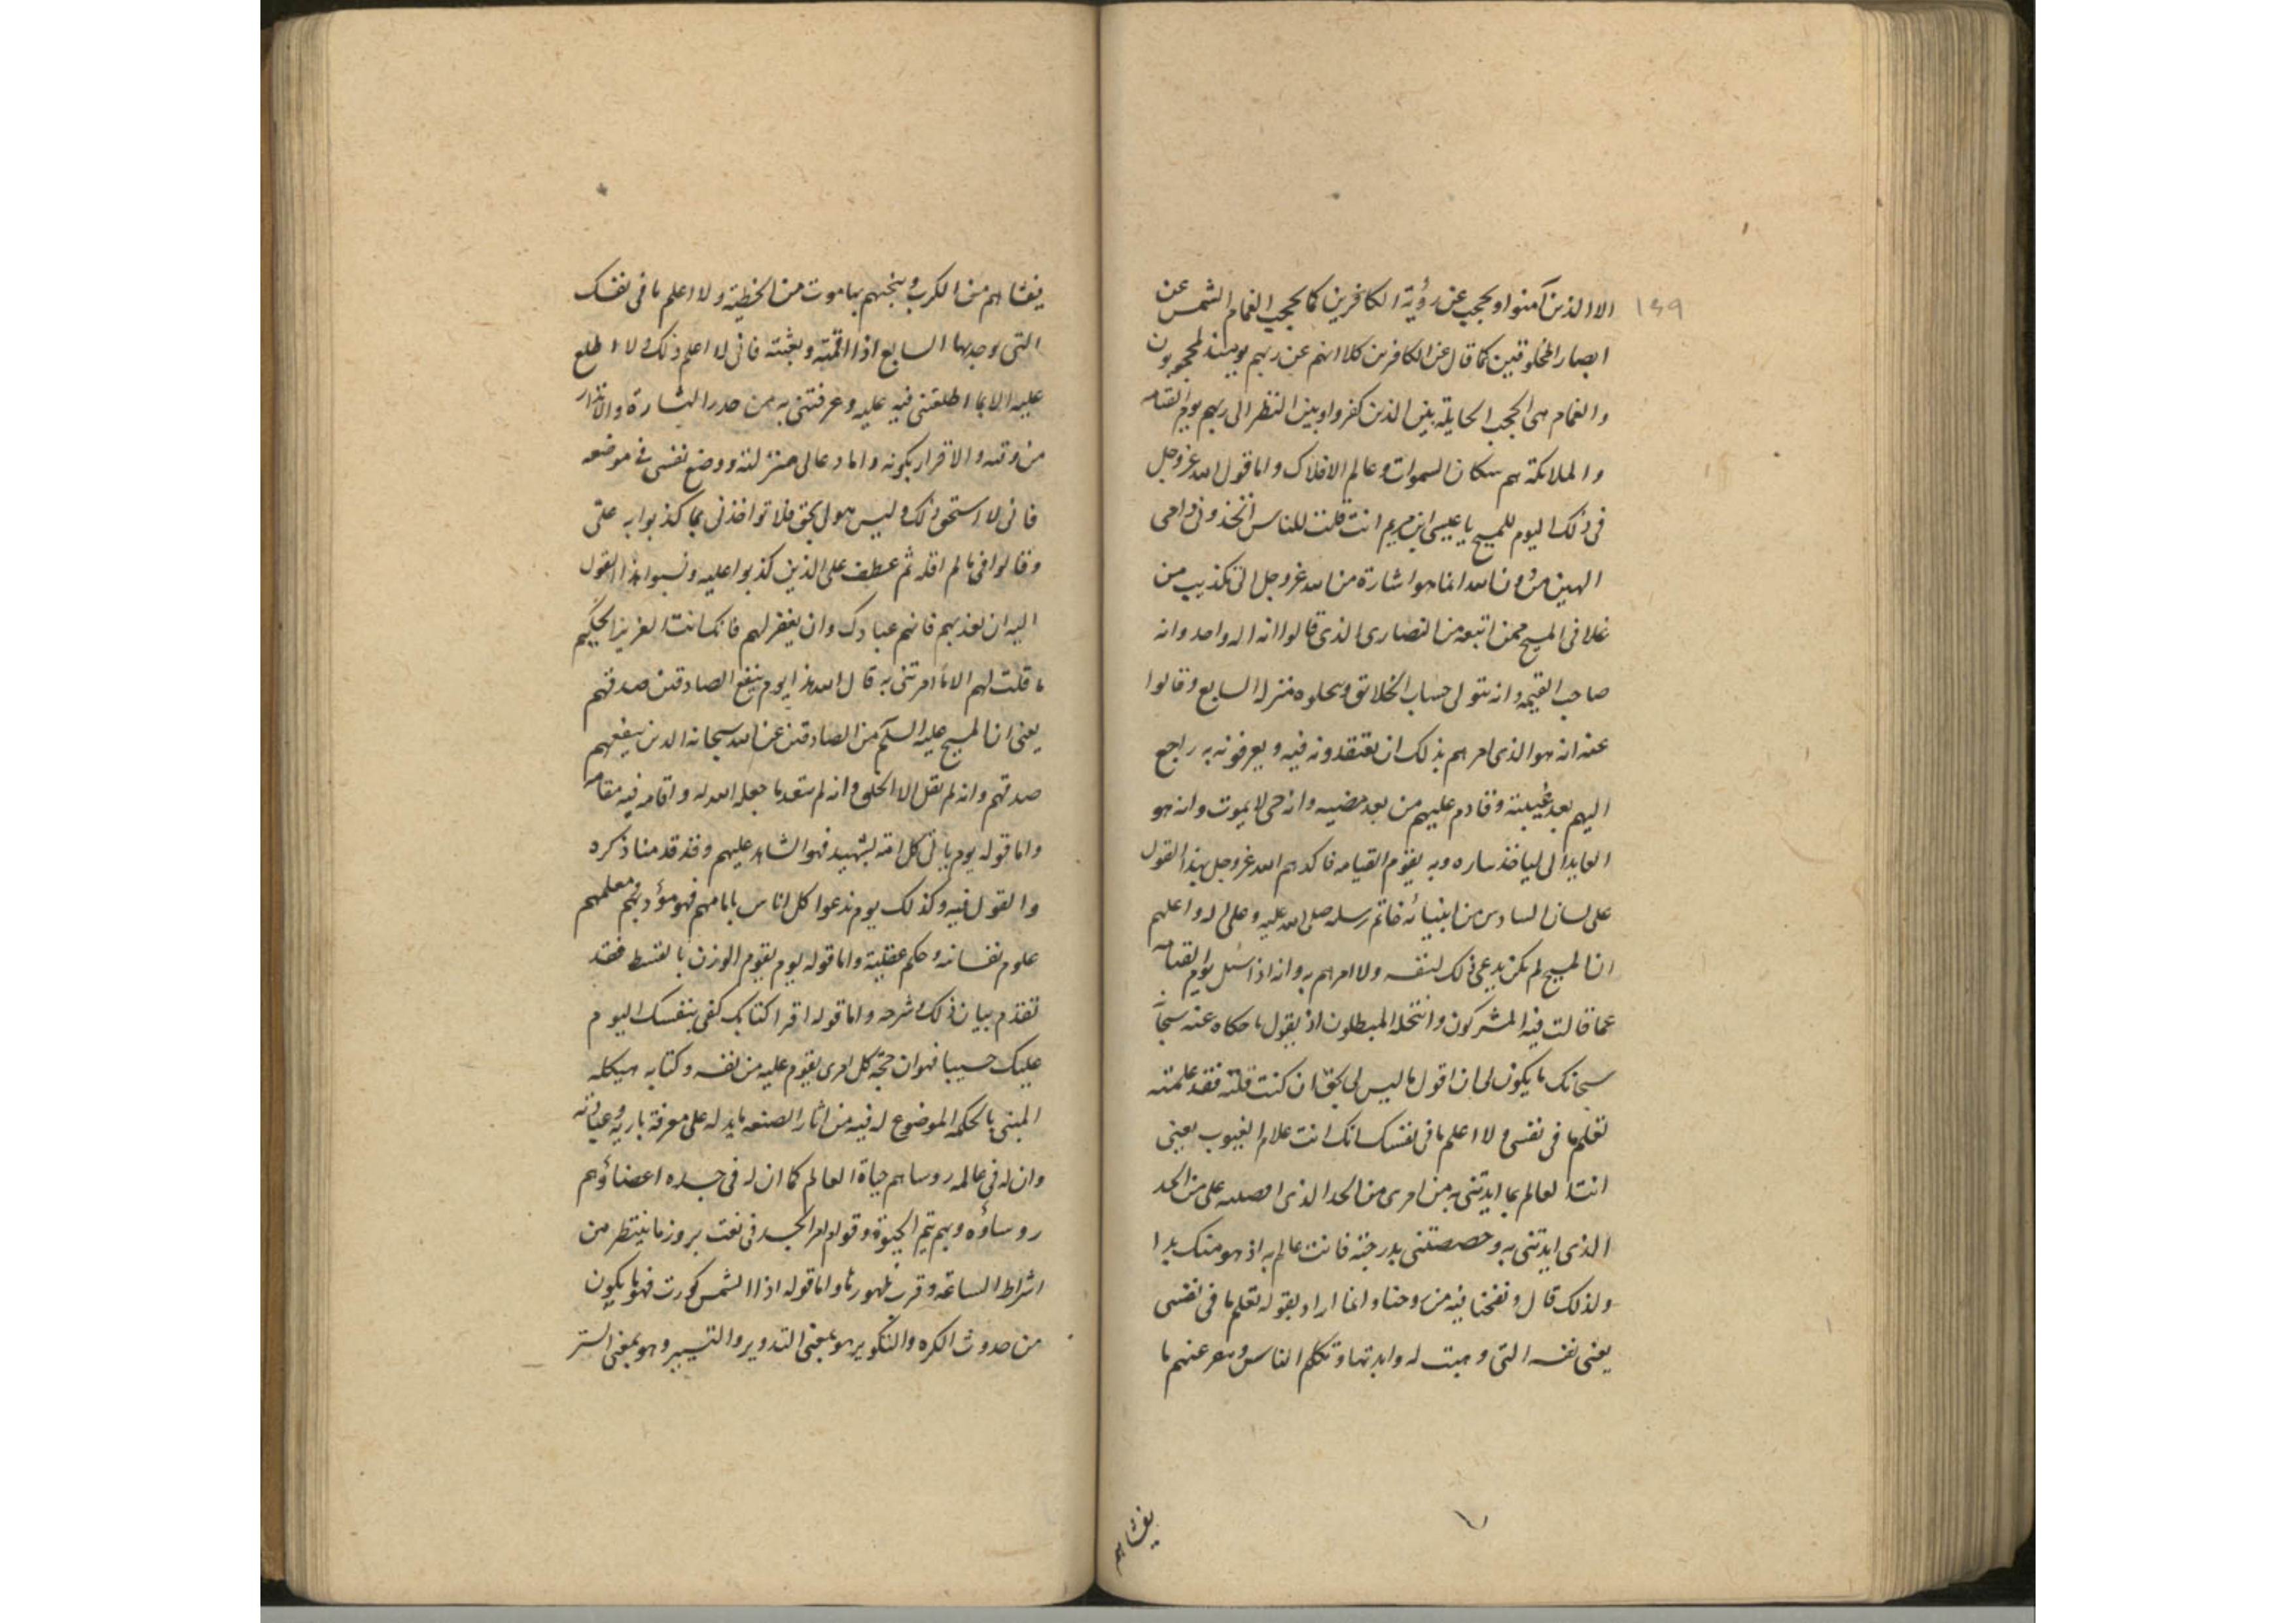 ١٤٩
الا الذين آمنوا و يحجب عن رؤية الكافرين كما يحجب الغمام الشمس عن
ابصار المخلوقين كما قال عن الكافرين كلا انهم عن ربهم يومئذ لمحجوبون
والغمام هى الحجب الحايلة بين الذين كفروا وبين النظر الى ربهم يوم القيامه
والملائكة هم سكان السموات وعالم الافلاك واما قول الله عز وجل
فى ذلك اليوم للمسيح يا عيسى ابن مريم انت قلت للناس اتخذونى وامى
الهين من دون الله انما هو اشارة من الله عز وجل الى تكذيب من
غلا فى المسيح ممن اتبعه من النصارى الذى قالوا انه اله واحد وانه
صاحب القيمه وانه يتولى حساب الخلائق ويحلوه منزلة السابع وقالوا
عنه انه هو الذى امرهم بذلك ان يعتقدونه فيه ويعرفونه به راجع
اليهم بعد غيبته وقادم عليهم من بعد مضيه وانه حى لا يموت وانه هو
العايد الى لياخذ ثاره وبه يقوم القيامه فاكذبهم الله عز وجل بهذا القول
على لسان السادس من انبيائه خاتم رسله صلى الله عليه وعلى اله واعلمهم
ان المسيح لم يكن يدعى ذلك لنفسه ولا امرهم به وانه اذا سئل يوم القيامه
عما قالت فيه المشركون وانتحله المبطلون اذ يقول ما حكاه عنه سبحانه
سبحانك ما يكون لى ان اقول ما ليس لى بحق ان كنت قلته فقد علمته
تعلم ما فى نفسى ولا اعلم ما فى نفسك انك انت علام الغيوب يعنى
انت العالم بما ايدتنى به من امرى من الحد الذى على من الحد
الذى ايدتنى به وخصصتنى بدرجته فانت عالم به اذ هو منك بدا
ولذلك قال ونفخنا فيه من روحنا وانما اراد بقوله تعلم ما فى نفسى
يعنى نفسه التى وهبت له وايدتها وتكلم الناس عنهم ما
يغشاهم
يغشاهم من الكرب وينجيهم بها موت من الخطية ولا اعلم ما فى نفسك
التى وجدبها السابع اذا اقمته وبعثته فانى لا اعلم ذلك ولا اطلع
عليه الا بما اطلعتنى فيه عليه وعرفتنى به من حد البشارة والانذار
من وقته والاقرار بكونه واما دعالى منزلته ووضع نفسى فى موضعه
فانى لا استحق ذلك وليس هو لى بحق فلا تواخذنى بما كذبوا به على
وقالوا فى ما لم اقله ثم عطف على الذين كذبوا عليه ونسبوا هذا القول
اليه ان تعذبهم فانهم عبادك وان يغفر لهم فانك انت العزيز الحكيم
ما قلت لهم الا ما امرتنى به قال الله هذا يوم ينفع الصادقين صدقهم
يعنى ان المسيح عليه السلم من الصادقين عن الله سبحانه الذين ينفعهم
صدقهم وانه لم يقل الا الحق وانه لم يتعد ما جعله الله له واقامه فيه مقامه
واما قوله يوم ياتى كل امة بشهيد فهو الشاهد عليهم وقد قدمنا ذكره
والقول فيه وكذلك يوم ندعوا كل اناس بامامهم فهو مؤدبهم معلمهم
علوم نفسانه وحكم عقلية واما قوله يوم يقوم الوزن بالقسط فقد
تقدم بيان ذلك وشرحه واما قوله اقرا كتابك كفى بنفسك اليوم
عليك حسيبا فهو ان حجة كل امرى يقوم عليه من نفسه وكتابه هيكله
المبنى بالحكمه الموضوع له فيه من اثار الصنعه ما يدله على معرفة باريه
وان له فى عالمه روسا هم حياة العالم كما ان له فى جسده اعضاؤهم
روساؤه وبهم يتم الحيوة وقوام امر الجسد فى نعت بروز ما ينتظر من
اشراط الساعة وقرب ظهورها واما قوله اذا الشمس كورت فهو ما يكون
من حدوث الكره والتكوير هو بمعنى التدوير والتسيير وهو بمعنى الستر